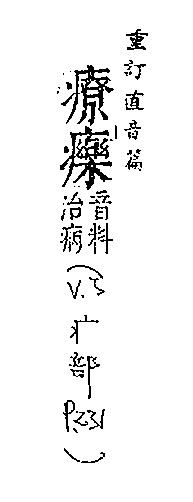 重訂直音篇
療𤻲音料治病(V.5疒部P.231)